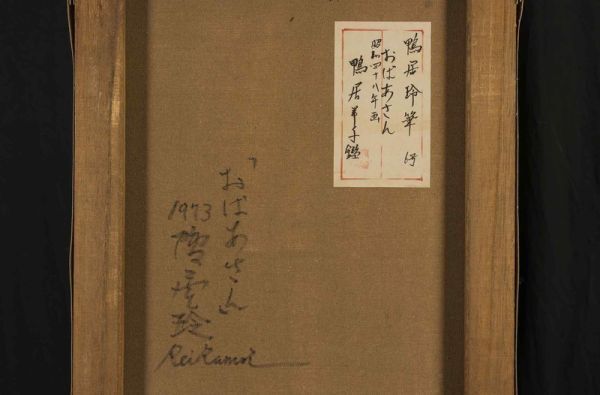 鴨居玲筆
おばあさん
昭和四十八年画
鴨居羊子鑑
「おばあさん」
1973
鴨居玲
Rei Kamoi